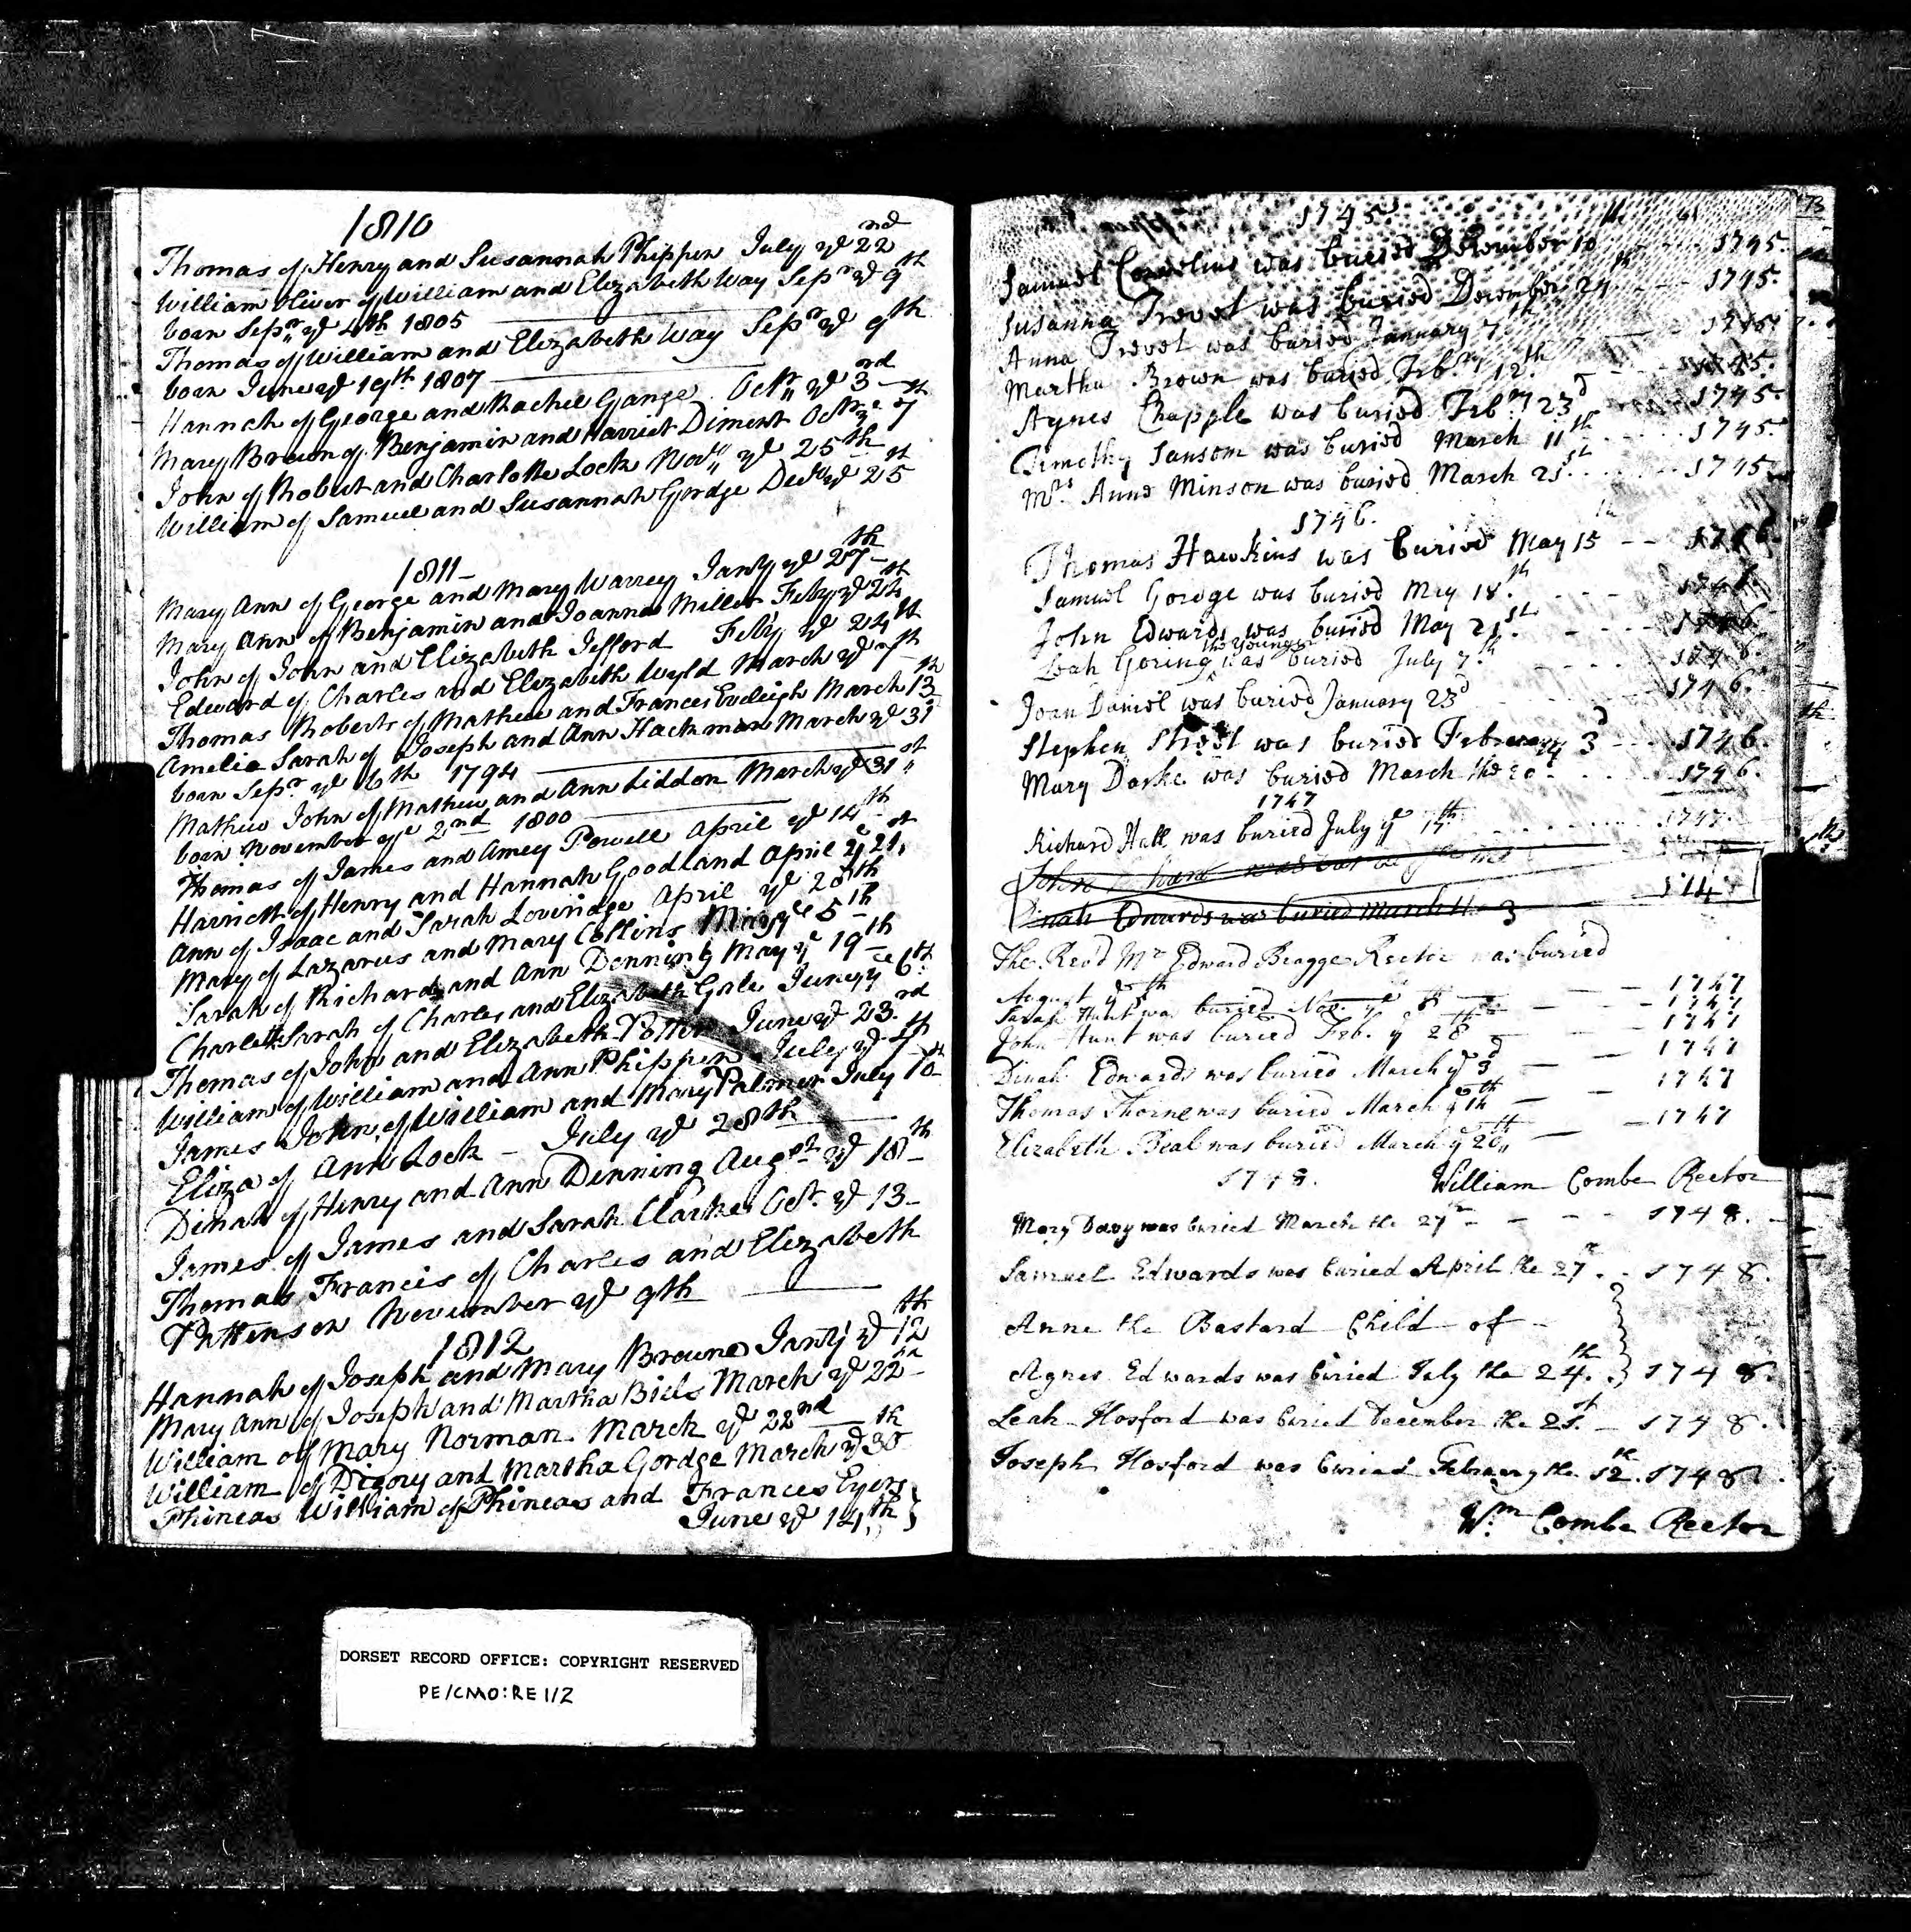 1810
Thomas of Henry and Susannah Phippen July ye 22nd
William Oliver of William and Elizabeth Way Sepr ye 9th
born Sepr ye 4th 1805
Thomas of William and Elizabeth Way Sepr ye 9th
born June ye 19th 1807
Hannah of George and Rachel Gange Octr ye 3rd
Mary Brown of Benjamin and Harriet Diment Octr ye 7th
John of Robert and Charlotte Lock Novr ye 25th
William of Samuel and Susannah Gordge Decr ye 25
1811
Mary Ann of George and Mary Warrey Jany ye 27th
Mary Ann of Benjamin and Joanna Miller Feby ye 24th
John of John and Elizabeth Jefford Feby ye 24th
Edward of Charles and Elizabeth Wyld March ye 7th
Thomas Roberts of Mathew and Frances Eveleigh March 13th
Amelia Sarah of Joseph and Ann Hackman March ye 31
born Sepr ye 6th 1794
Mathew John of Mathew and Ann Liddon March ye 31st
born November ye 2nd 1800
Thomas of James and Amey Powell April ye 14th
Harriett of Henry and Hannah Goodland April ye 21st
Ann of Isaac and Sarah Loveridge April ye 28th
Mary of Lazarus and Mary Collins May ye 5th
Sarah of Richard and Ann Denning May ye 19th
Charlotte Sarah of Charles and Elizabeth Gale June ye 6th
Thomas of John and Elizabeth June ye 23rd
William of William and Ann Phippen July ye 7th
James John of William and Mary Palmer July 10th
Eliza of Ann Lock - July ye 28th
Dinah of Henry and Ann Denning Augst ye 18th
James of James and Sarah Clarke Octr ye 13
Thomas Francis of Charles and Elizabeth
Pattenson November ye 9th
1812
Hannah of Joseph and Mary Browne Jany ye 12th
Mary Ann of Joseph and Martha Biels March ye 22
William of Mary Norman March ye 22nd
William of Digory and Martha Gordge March ye 30th
Phineas William of Phineas and Frances Eyers
June ye 14th
73
1745
Samuel Cornelius was buried December 10 1745.
Susanna Trevet was buried December 24th 1745.
Anna Trevet was buried January 7th 1745
Martha Brown was buried Febry 12th 1745.
Agnes Chapple was buried Febry 23d 1745.
Timothy Sansom was buried March 11th 1745.
Mrs Anne Minson was buried March 21st 1745
1746.
Thomas Hawkins was buried May 15th 1746.
Samuel Gordge was buried May 18th 1746.
John Edwards was buried May 21st 1746
Leah Goring the younger was buried July 7th 1746.
Joan Daniel was buried January 23d 1746.
Stephen Street was buried February 3d 1746.
Mary Darke was buried March the 20 1746.
1747
Richard Hall was buried July ye 17th 1747.
John
Dinah Edwards was buried March 3
The Revd Mr Edward Bragge Rector was buried
August ye 5th 1747
Sarah Hunt was buried Nov. ye 8th 1747
John Hunt was buried Feb. ye 28th 1747
Dinah Edwards was buried March ye 3d 1747
Thomas Thorne was buried March ye 17th 1747
Elizabeth Beal was buried March ye 20th 1747
1748. William Combe Rector
Mary Davy was buried March the 27th 1748.
Samuel Edwards was buried April the 27th 1748.
Anne the Bastard Child of
Agnes Edwards was buried July the 24th. 1748.
Leah Hosford was buried December the 21st. 1748.
Joseph Hosford was buried February the 12th 1748.
Wm Combe Rector
DORSET RECORD OFFICE: COPYRIGHT RESERVED
PE/CMO:RE 1/2